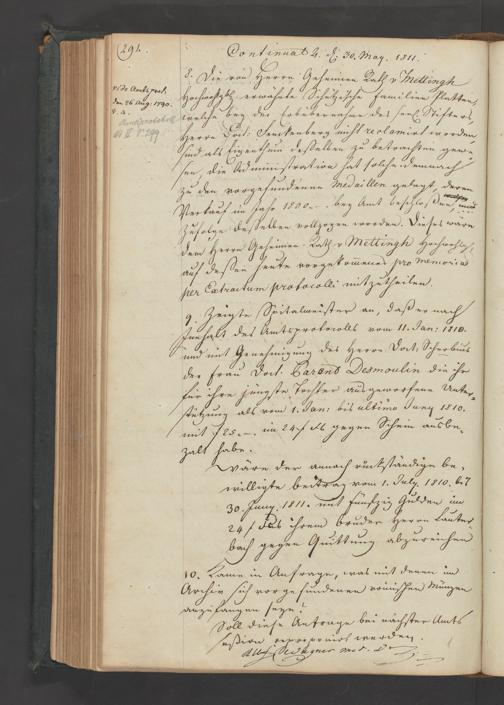 291.
Continuat. d. 30. May. 1811.
vide Amts prot.
den 26 Aug. 1790.
8. Die von Herrn Geheimen Rath v. Mettingh
Hochwohlgeb. erwähnte Schützische Familien Platten,
welche bey der Erbebernahme des sen. Stifters,
Herrn Doct. Senckenberg nicht reclamirt worden
sind als Eigenthum desselben zu betrachten gewe-
sen, die Administration hat solche demnach
zu den vorgefundenen Medaillen gelegt, deren
Verkauf im Jahr 1800. bey Amt beschlossen, und
zufolge desselben vollzogen worden. Dieses wäre
dem Herrn Geheimen Rath v. Mettingh Hochwohlgeb.
auf dessen heute vorgekommenes pro memoria
per Extractum protocolli mitzutheilen.
9. Zeigte Spitalmeister an, daß er nach
Innhalt des Amtsprotocolls vom 11. Jan: 1810.
und mit Genehmigung des Herrn Doct. Scherbius
der Frau Doct. Barend Desmoulin die ihr
für ihre jüngste Tochter ausgeworfene Unter-
stützung als vom 1. Jan: bis ultimo Juny 1810.
mit f 25.-. im 24 f Fuß gegen Schein ausbe-
zalt habe.
Wäre der annoch rückständige be-
willigte Beitrag vom 1. July. 1810. bis
30. Juny. 1811. mit fünfzig Gulden im
24 f Fus ihrem Bruder Herrn Lauter
bach gegen Quittung abzureichen
10. Kame in Anfrage, was mit denen im
Archiv sich vorgefundenen römischen Münzen
anzufangen seye?
Soll diese Anfrage bei nächster Amts
session reproponirt werden.